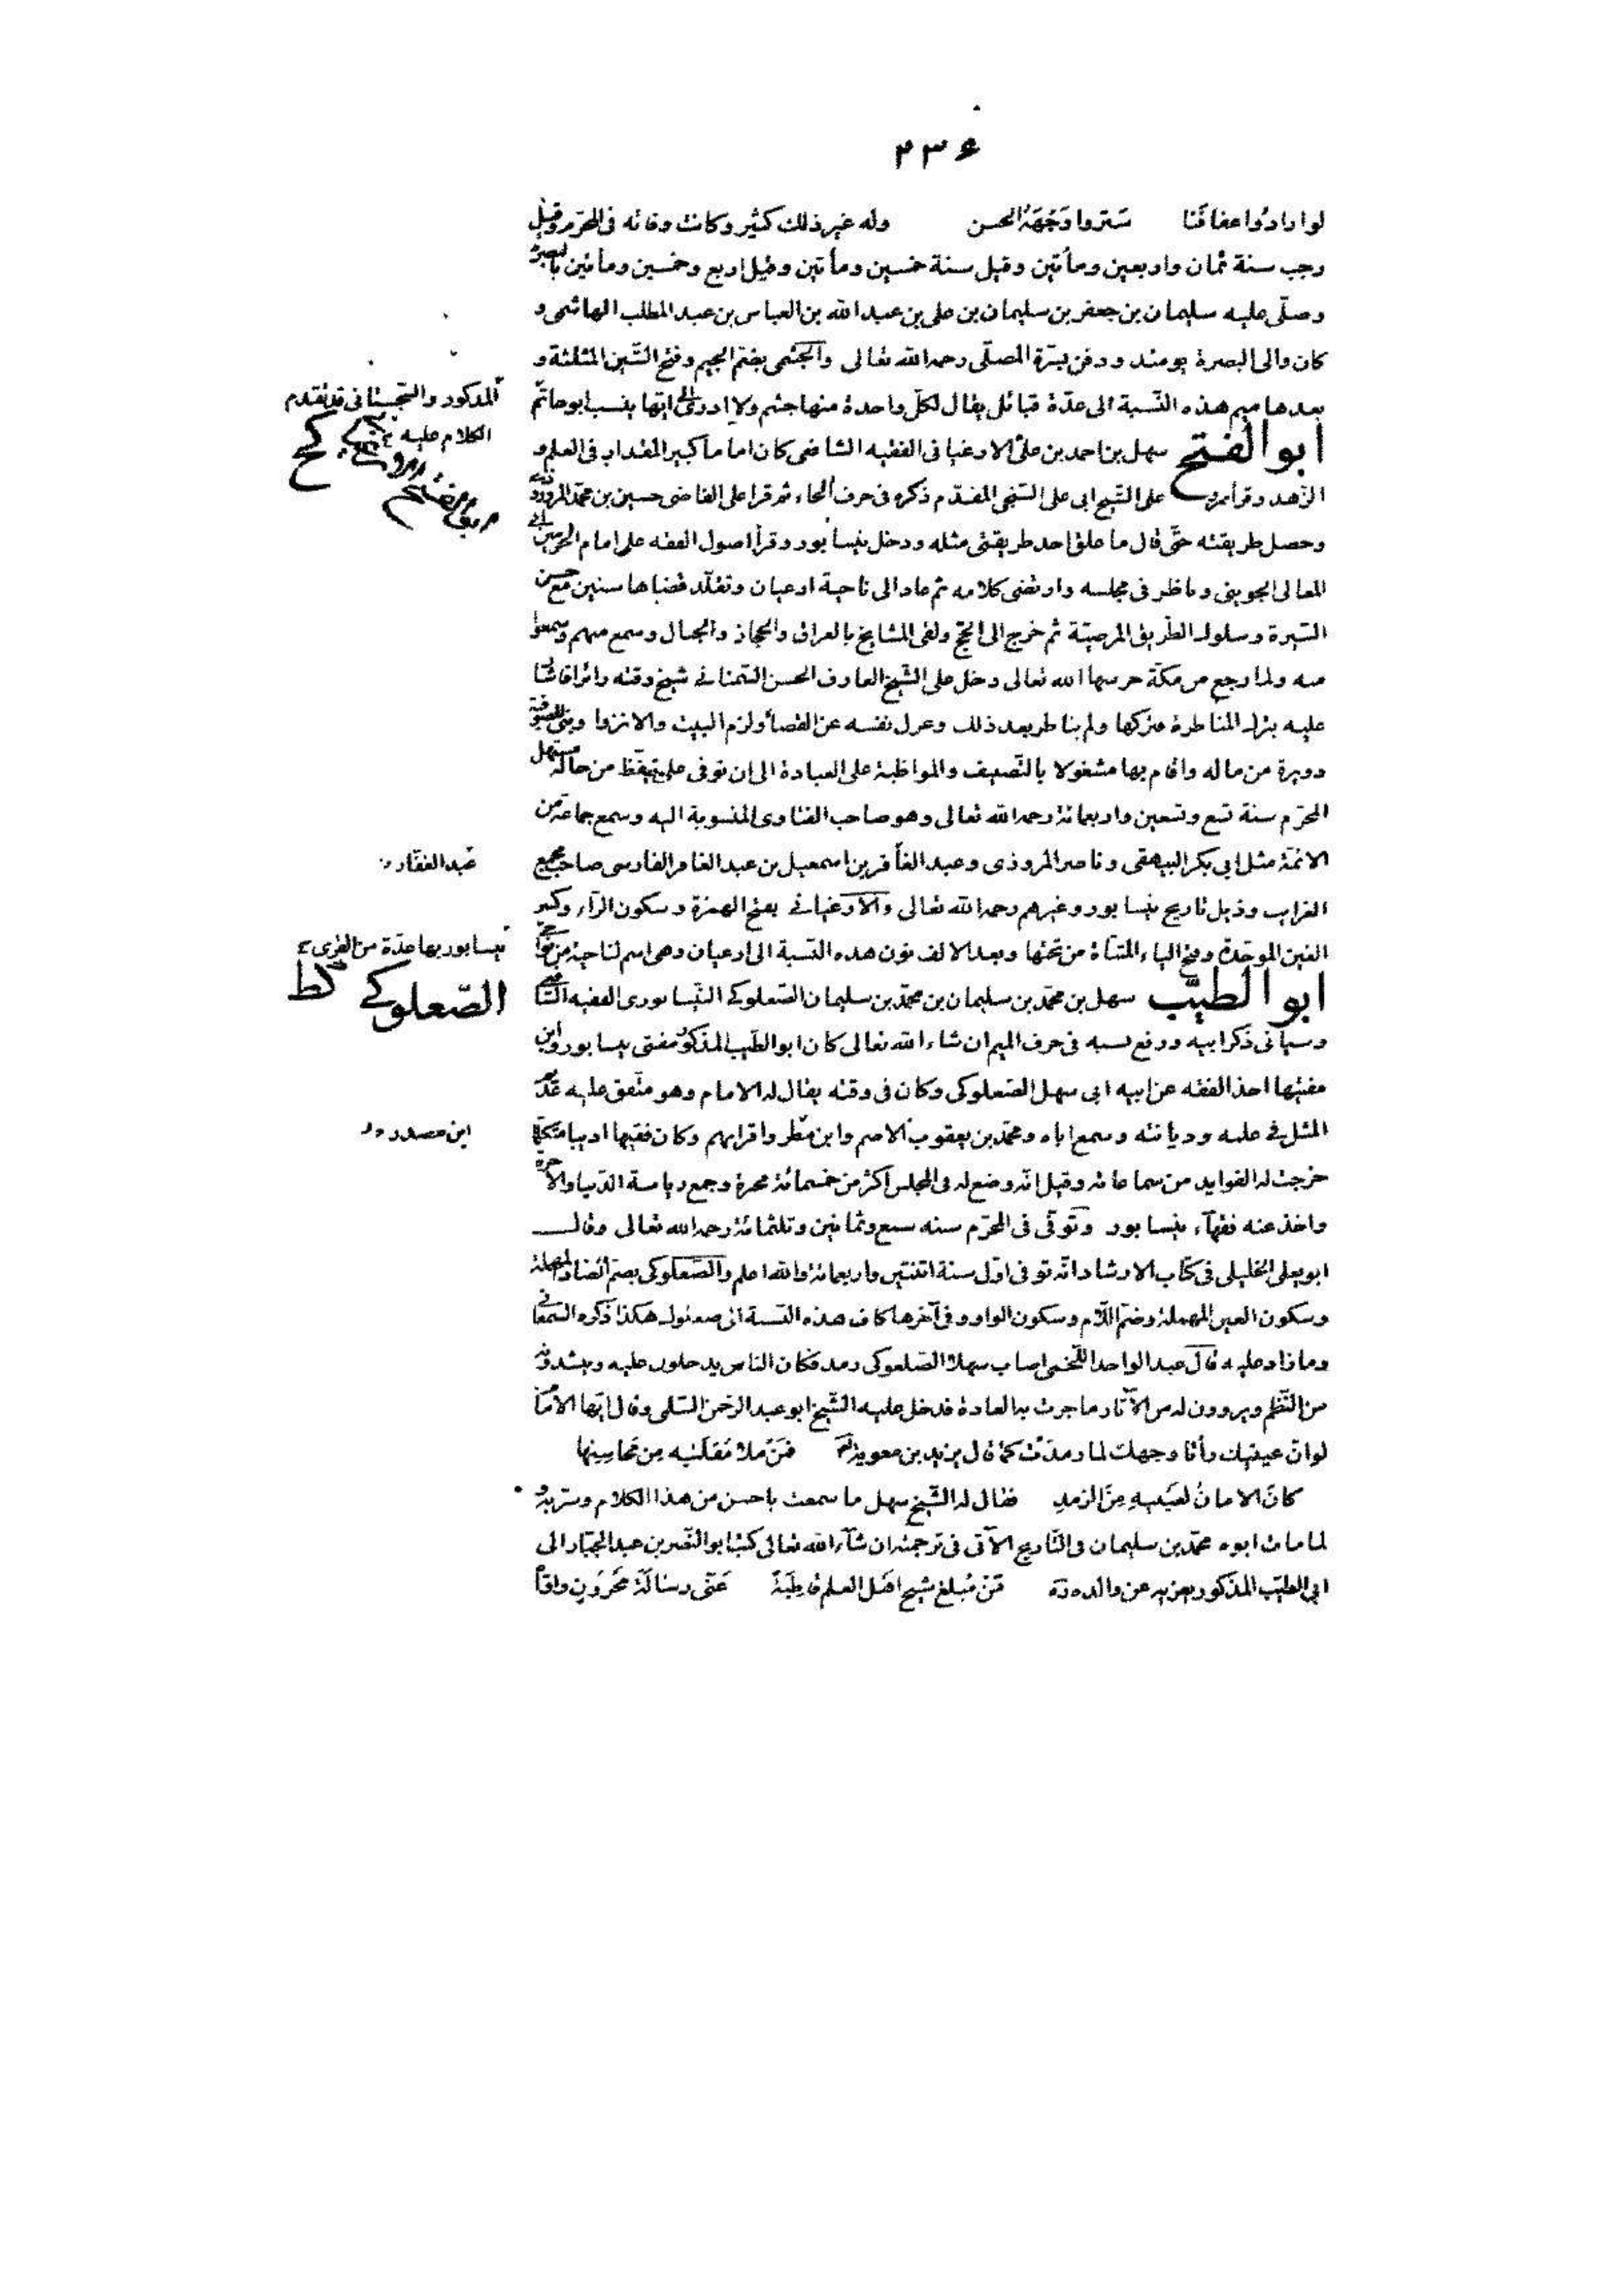 ٢٣٤
لو ارادوا عفافنا ستروا وجهه الحسن وله غير ذلك كثير وكانت وفاته فى المحرم وقيل
رجب سنة ثمان واربعين ومأتين وقيل سنة خمسين ومأتين وقيل اربع وخمسين ومأتين بالبصرة
وصلّى عليه سليمان بن جعفر بن سليمان بن على بن عبد الله بن العباس بن عبد المطلب الهاشمى و
كان والى البصرة يومئد ودفن بسرّة المصلّى رحمه الله تعالى والجشمى بضمّ الجيم وفتح الشّين المثلثة و
بعدها ميم هذه النّسبة الى عدّة قبائل يقال لكلّ واحدة منها جشم ولا ادرى الى ايّها ينسب ابو حاتم
المدكور والسّجستانى قد تقدم
الكلام عليه
ابو الفتح سهل بن احمد بن على الارغيانى الفقيه الشافعى كان اماما كبير المقدار فى العلم و
كح
الزّهد وقرأ بمرو على الشّيخ ابى على السّنجى المقدّم ذكره فى حرف الحاء ثم قرا على القاضى حسين بن محمّد المروروذى
وحصل طريقته حتّى قال ما علق احد طريقتى مثله ودخل نيسابور وقرأ اصول الفقه على امام الحرمين ابى
المعالى الجوينى وناظر فى مجلسه وارتضى كلامه ثم عاد الى ناحية ارغيان وتقلّد قضاها سنين مع حسن
السّيرة وسلوك الطّريق المرضيّة ثم خرج الى الحجّ ولقى المشايخ بالعراق والحجاز والجبال وسمع منهم وسمعوا
منه ولما رجع من مكّة حرسها الله تعالى دخل على الشّيخ العارف الحسن السّمنانى شيخ وقته زائرا فاشا
عليه بترك المناظرة فتركها ولم يناظر بعد ذلك وعزل نفسه عن القضا ولزم البيت والانزوا وبنى للصوفية
دويرة من ماله واقام بها مشغولا بالتّصنيف والمواظبة على العبادة الى ان توفى على تيقّظ من حاله مستهل
المحرّم سنة تسع وتسعين واربعمائة رحمه الله تعالى وهو صاحب الفتاوى المنسوبة اليه وسمع جماعة من
الائمّة مثل ابى بكر البيهقى وناصر المروذى وعبد الغافر بن اسمعيل بن عبد الغافر الفارسى صاحب مجمع
عبد الغفار
الغرايب وذيل تاريخ نيسابور وغيرهم رحمه الله تعالى والارغيانى بفتح الهمزة وسكون الرآء وكسر
الغين الموحّدة وفتح الياء المثنّاة من تحتها وبعد الالف نون هده النّسبة الى ارغيان وهى اسم لناحية من نواحى
نيسابور بها عدّة من القرى
ابو الطيّب سهل بن محمّد بن سليمان بن محمّد بن سليمان الصّعلوكى النّيسابورى الفقيه الشافعى
الصّعلوكى كط
وسيأتى ذكر ابيه ورفع نسبه فى حرف الميم ان شاء الله تعالى كان ابو الطّيب المذكور مفتى نيسابور وابن
مفتيها اخذ الفقه عن ابيه ابى سهل الصّعلوكى وكان فى وقته يقال له الامام وهو متّفق عليه عديم
المثل فى علمه وديانته وسمع اباه ومحمّد بن يعقوب الاصم وابن مطر واقرانهم وكان فقيها اديبا متكلّما
خرجت له الفوايد من سماعاته وقيل انّه وضع له فى المجلس اكثر من خمسمائة محبرة وجمع رياسة الدّنيا والاخرة
واخذ عنه فقهآء نيسابور وتوفّى فى المحرّم سنه سبع وثمانين وثلثمائة رحمه الله تعالى وقال
ابو يعلى الخليلى فى كتاب الارشاد انّه توفى اوّل سنة اثنتين واربعمائة والله اعلم والصّعلوكى بضم الضاد المهملة
وسكون العين المهملة وضمّ اللّام وسكون الواو وفى آخرها كاف هذه النّسبة الى صعلوك هكذا ذكره السّمعانى
وما زاد عليه قال عبد الواحد اللّخمى اصاب سهلا الصّلعوكى رمد فكان الناس يدخلون عليه وينشدونه
من النّظم ويروون له من الآثار ما جرت به العادة فدخل عليه الشّيخ ابو عبد الرّحمن السّلمى وقال ايّها الامام
لو انّ عينيك رأتا وجهك لما رمدت كما قال يزيد بن معوية فمن ملا مقلتيه من محاسنها
كان الامان لعينيه من الرمد فقال له الشّيخ سهل ما سمعت باحسن من هذا الكلام وسرّ به و
لما مات ابوه محمّد بن سليمان فى التّاريخ الآتى فى ترجمته ان شآء الله تعالى كتب ابو النّصر بن عبد الجبّار الى
ابى الطيّب المذكور يعزيه عن والده من مبلغ شيخ اهل العلم قاطبة عنّى رسالة محزون واواه